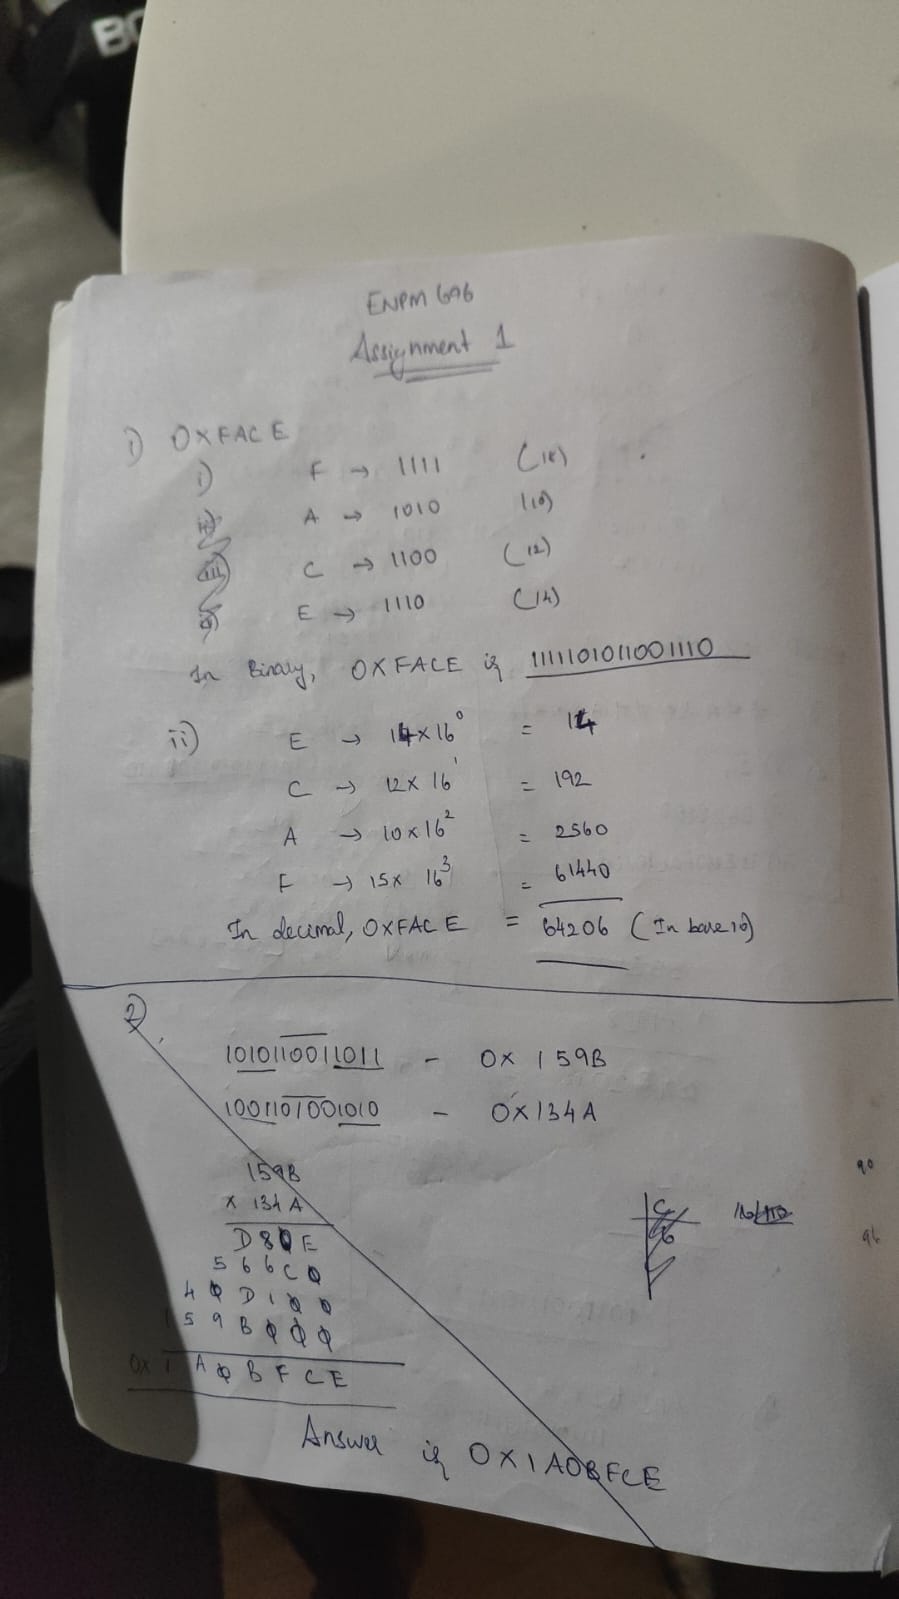 BO
ENPM 696
Assignment 1
1) OXFACE
i) F → 1111 (15)
A → 1010 (10)
C → 1100 (12)
E → 1110 (14)
In Binary, OXFACE is 1111101011001110
ii) E → 14 x 16⁰ = 14
C → 12 x 16¹ = 192
A → 10 x 16² = 2560
F → 15 x 16³ = 61440
In decimal, OXFACE = 64206 (In base 10)
2)
1010110011011 - OX 159B
1001101001010 - OX134A
159B
x 134A
D80E
566C0
40D100
159B000
0x1A0BFCE
90
96
Answer is OX1AOBFCE